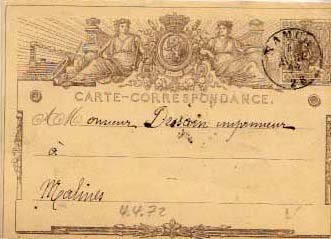 NAMUR
CARTE-CORRESPONDANCE.
A Monsieur Dessain imprimeur
à
Malines
4.4.72